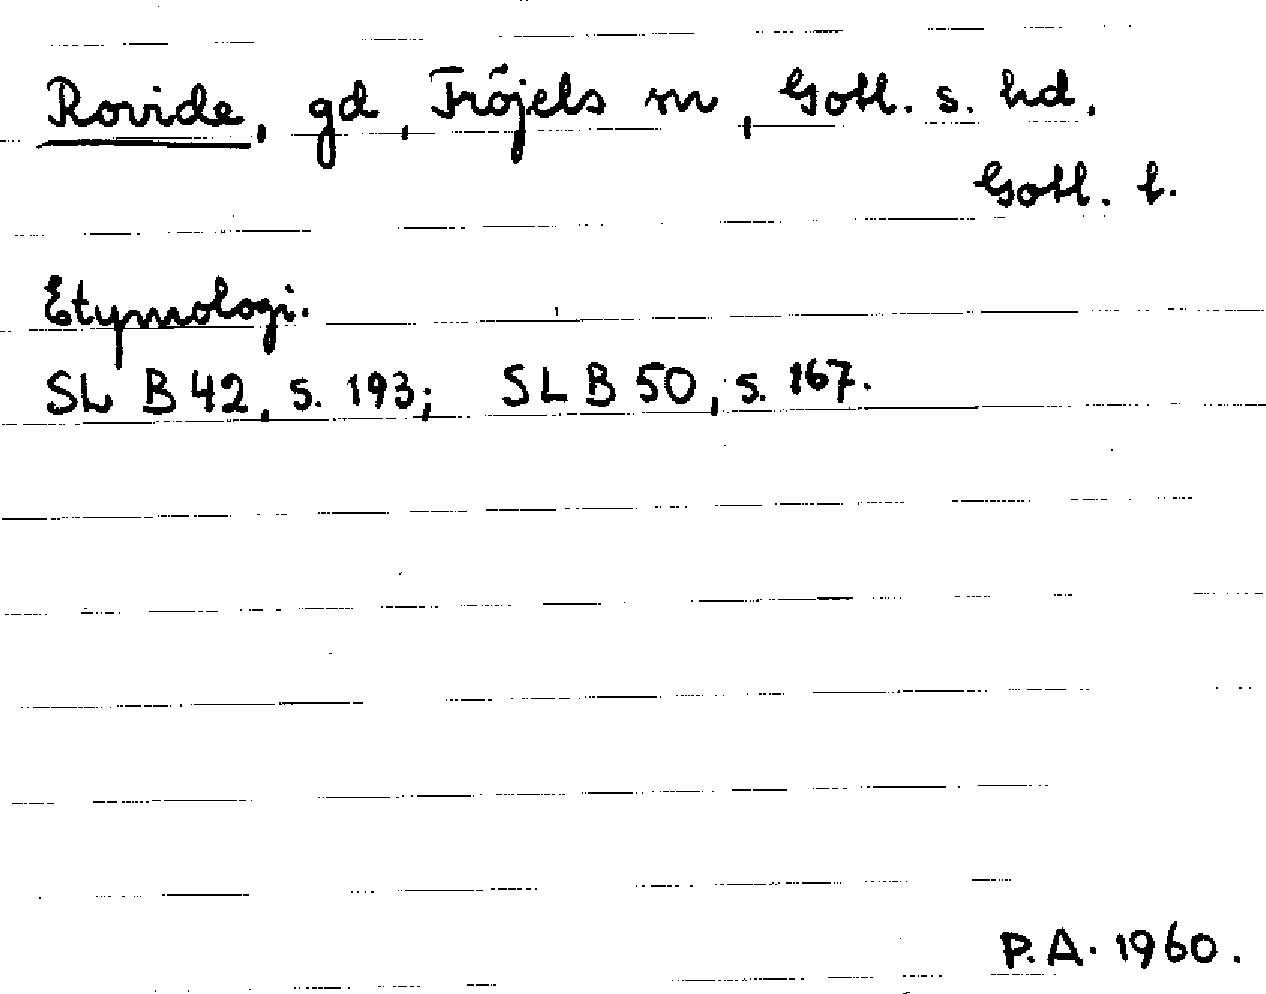 Rovide, gd, Fröjels sn, Gotl. s. hd.
Gotl. l.
Etymologi.
SL B 42, s. 193; SL B 50, s. 167.
P.A. 1960.